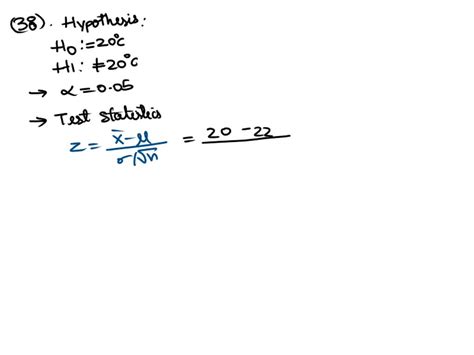 (38). Hypothesis:
H0 := 20°C
H1: ≠ 20°C
→ α = 0.05
→ Test Statistics
z = x̄ - μ / σ/√n = 20 - 22